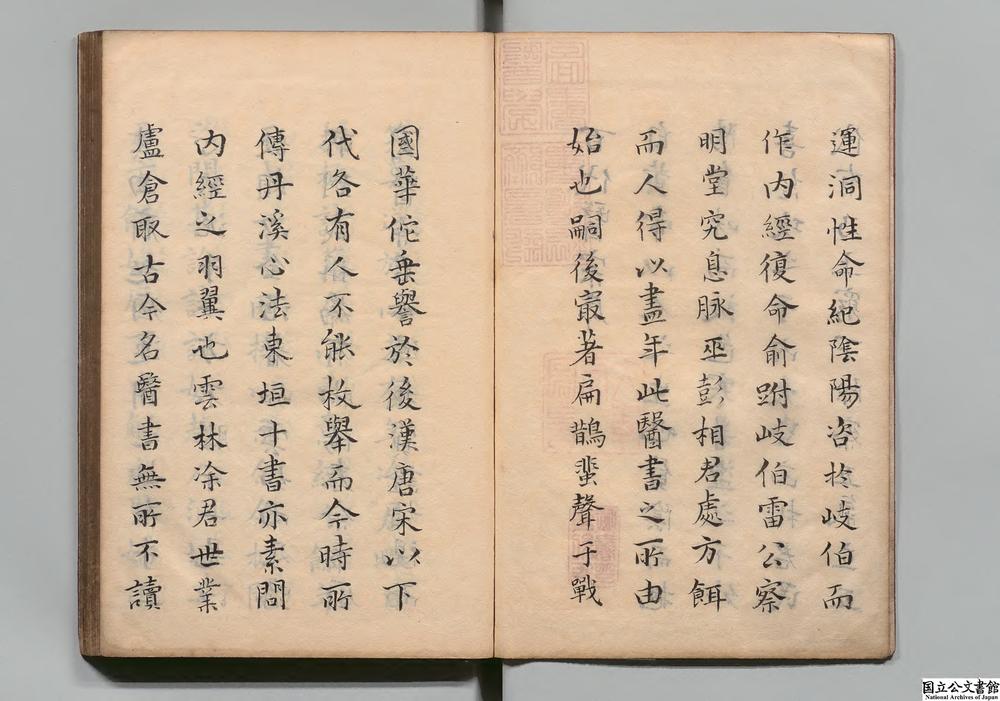 運洞性命紀陰陽咨於岐伯而
作内經復命俞跗岐伯雷公察
明堂究息脉巫彭桐君處方餌
而人得以盡年此醫書之所由
始也嗣後㝡著扁鵲蜚聲于戰
國華佗垂譽於後漢唐宋以下
代各有人不能枚舉而今時所
傳丹溪心法東垣十書亦素問
内經之羽翼也雲林凃君世業
盧倉取古今名醫書無所不讀
国立公文書館
National Archives of Japan